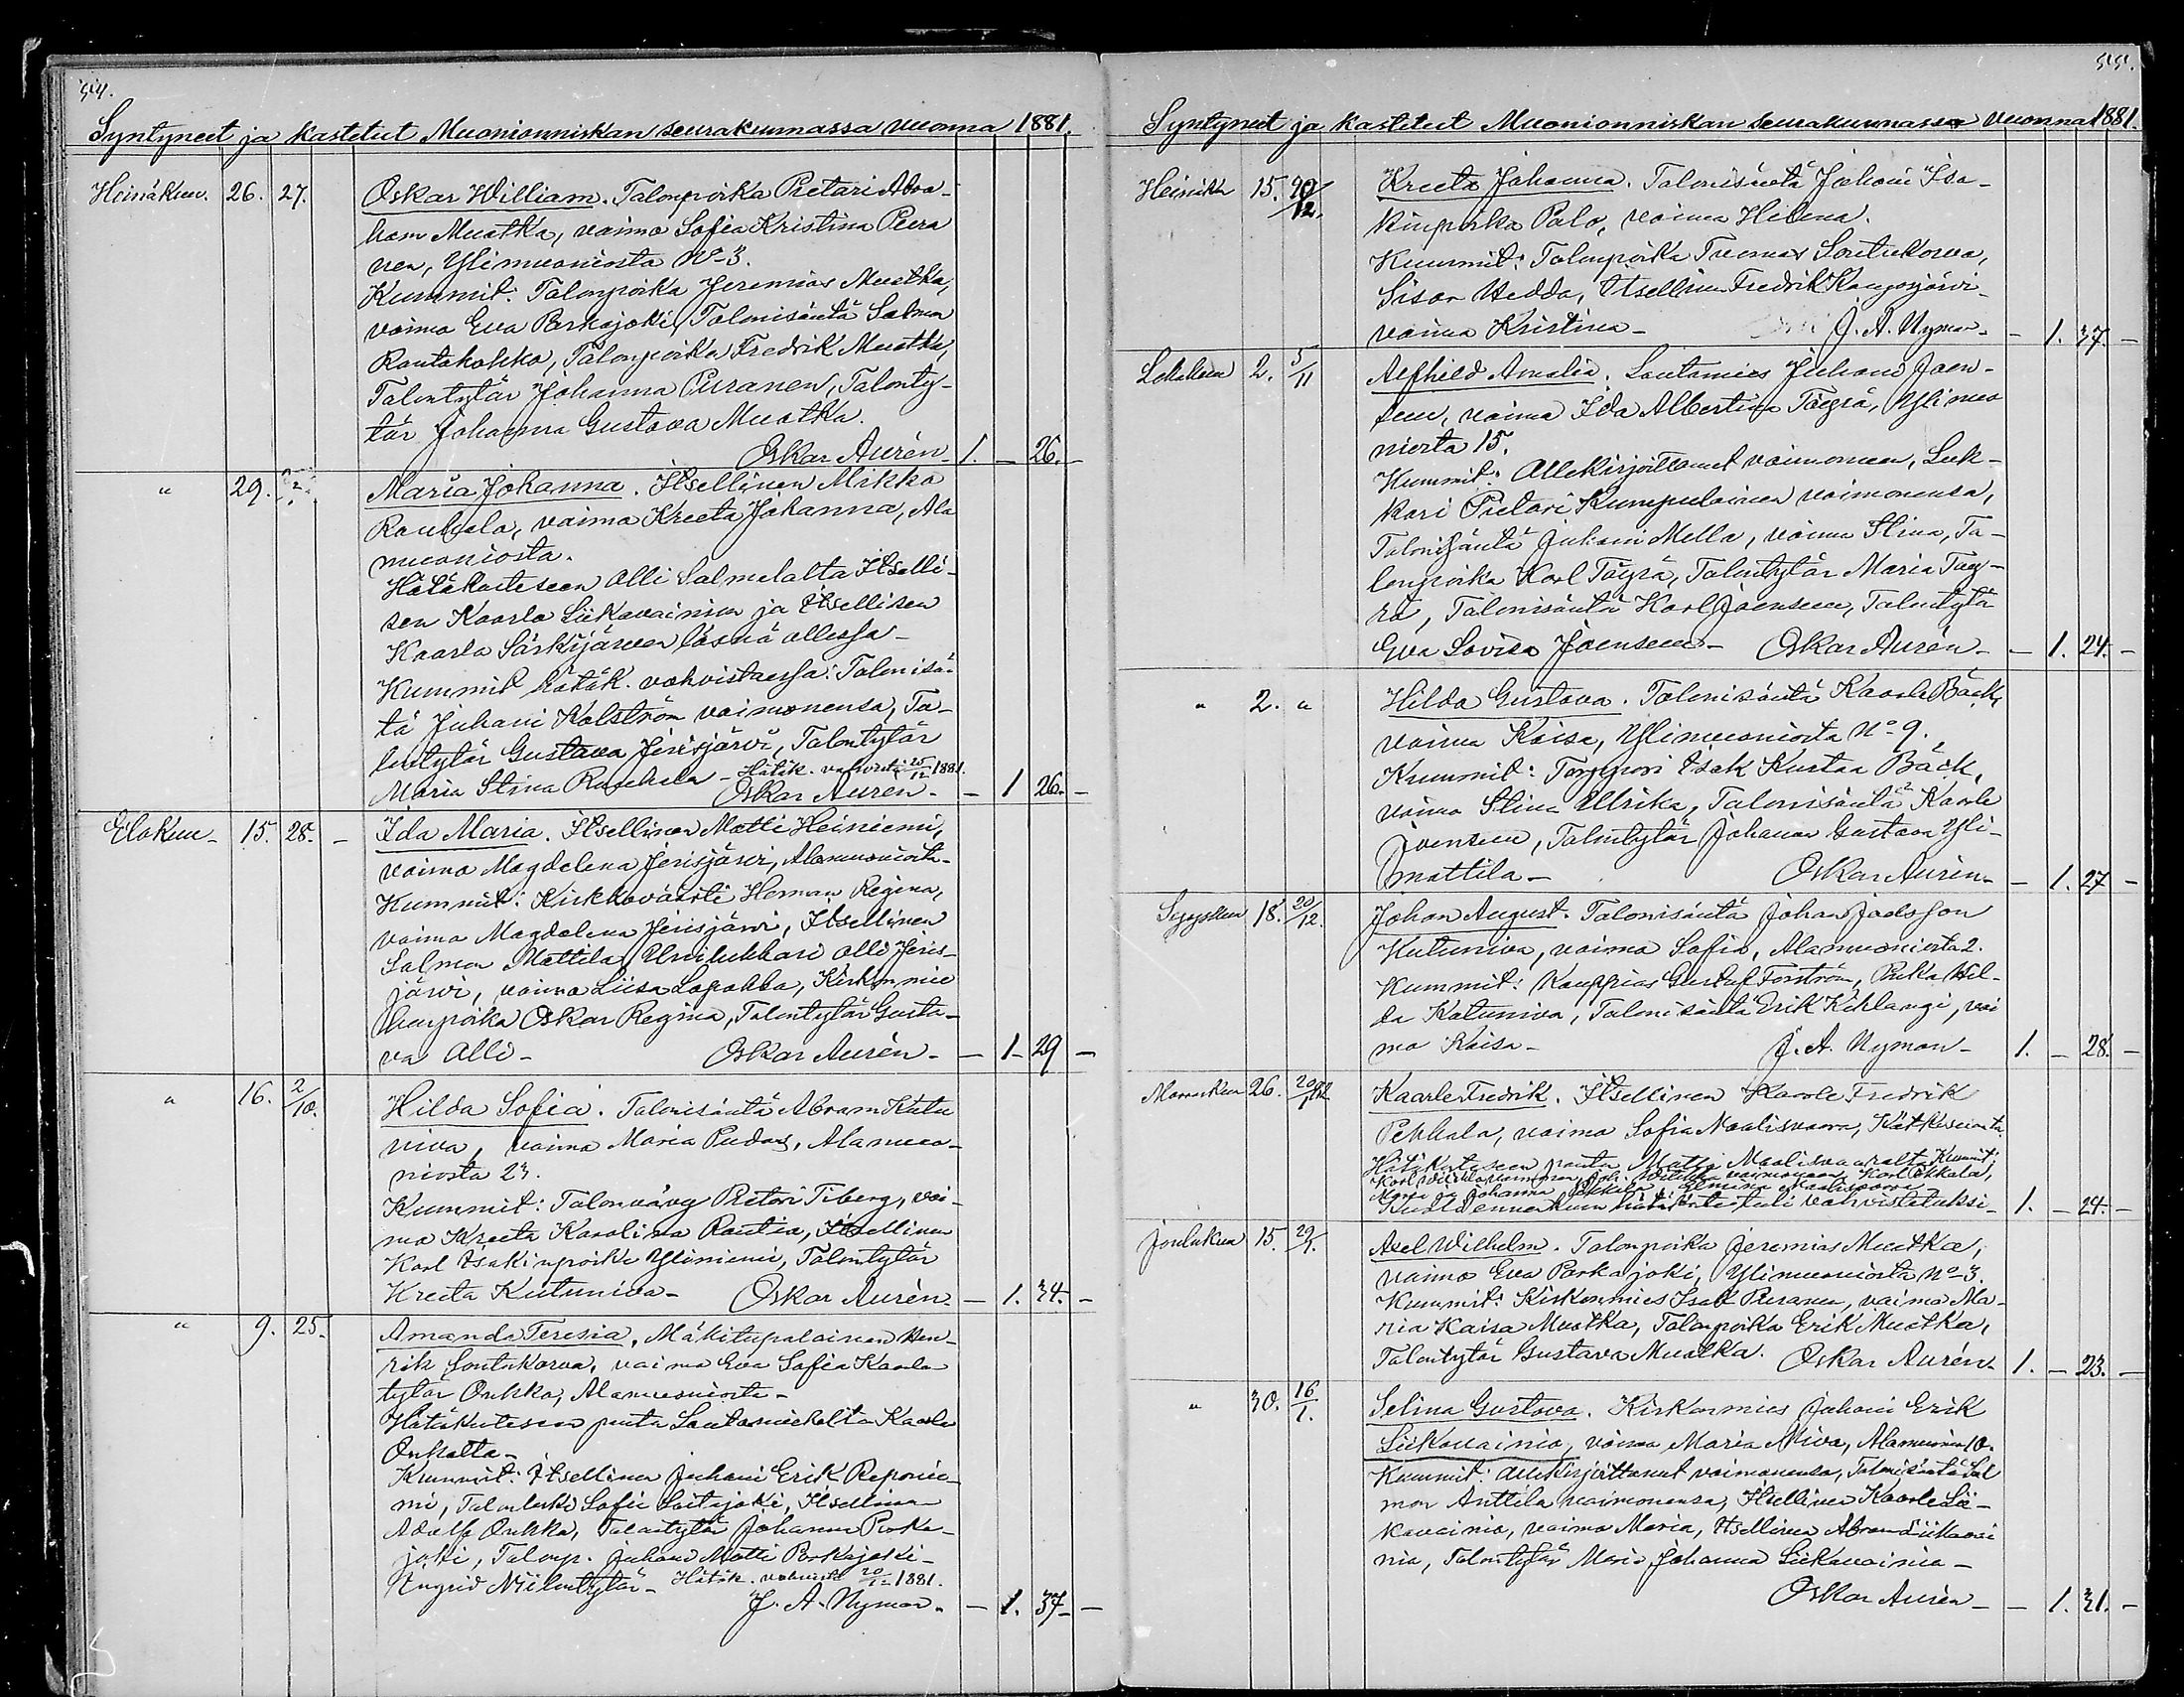 54.
Syntyneet ja kastetut Muonionniskan seurakunnassa vuonna 1881.
Heinäkuu. 26. 27. Oskar William. Talonpoika Pietari Abra-
ham Muotka, vaimo Sofia Kristina Peura
nen, Ylimuoniosta No 3.
Kummit: Talonpoika Jeremias Muotka,
vaimo Eva Parkajoki, Talonisäntä Salmon
Rautakokko, Talonpoika Fredrik Muotka,
Talontytär Johanna Puranen, Talonty-
tär Johanna Gustava Muotka.
Oskar Aurén 1. — 26. —
" 29. Maria Johanna. Itsellinen Mikko
Rauhala, vaimo Kreeta Johanna, Ala
muoniosta.
Hätäkasteseen Olli Salmelalta Itselli-
sen Kaarlo Siikavainion ja Itsellisen
Kaarlo Särkijärven läsnä ollessa-
Kummit hätäk. vahvistaessa: Talonisän-
tä Juhani Kolström vaimonensa, Ta-
lontytär Gustava Jerisjärvi, Talontytär
Maria Stina Rauhala - Hätäk. vahvist. 25/12 1881.
Oskar Aurén. — 1 26. —
Elokuu - 15. 28. — Ida Maria. Itsellinen Matti Heiniemi,
vaimo Magdalena Jerisjärvi, Alamuoniosta-
Kummit: Kirkkoväärti Herman Regina,
vaimo Magdalena Jerisjärvi, Itsellinen
Salmon Mattila, Unilukkari Olli Jeris-
järvi, vaimo Liisa Lapakko, Kirkonmie
henpoika Oskar Regina, Talontytär Gusta-
va Olli - Oskar Aurén - — 1 - 29 —
" 16. 2/10. Hilda Sofia. Talonisäntä Abram Kutu
niva, vaimo Maria Pudas, Alamuo-
niosta 23.
Kummit: Talonvävy Pietari Tiberg, vai-
mo Kreeta Karolina Rautio, Itsellinen
Karl Isakinpoika Yliniemi, Talontytär
Kreeta Kutuniva - Oskar Aurén. — 1. 34. —
" 9. 25. Amanda Teresia, Mäkitupalainen Hen-
rik Soutukorva, vaimo Eva Sofia Kaarlen
tytär Onkka, Alamuoniosta -
Hätäkasteseen pantu Lautamieheltä Kaarlo
Onkalta -
Kummit: Itsellinen Juhani Erik Reponie-
mi, Talonleski Sofia Soitajoki, Itsellinen
Adolf Onkka, Talontytär Johanna Parka-
joki, Talonp. Juhani Matti Parkajoki -
Ingrid Niilontytär - Hätäk. vahvist. 20/12 1881.
J. A. Nyman. — 1. 37 - —
55.
Syntyneet ja kastetut Muonionniskan seurakunnassa vuonna 1881.
Heinäkuu 15. 20/12. Kreeta Johanna. Talonisäntä Johani Isa-
kinpoika Palo, vaimo Helena.
Kummit: Talonpoika Tuomas Soutukorva,
Sisar Hedda, Itsellinen Fredrik Kangosjärvi -
vaimo Kristina - J. A. Nyman - — 1. 37. —
Lokakuu 2. 5/11 Alfhild Amalia. Lautamies Juhani Joen-
suu, vaimo Ida Albertina Täyrä, Ylimuo
niosta 15.
Kummit: Allekirjoittanut vaimoneen, Luk-
kari Pietari Kumpulainen vaimonensa,
Talonisäntä Juhani Mella, vaimo Stina, Ta-
lonpoika Karl Täyrä, Talontytär Maria Täy-
rä, Talonisäntä Karl Joensuu, Talontytä
Eva Lovisa Joensuu - Oskar Aurén - — 1. 24. —
" 2. " Hilda Gustava. Talonisäntä Kaarle Bäck,
vaimo Kaisa, Ylimuoniosta No 9.
Kummit: Torppari Isak Kustaa Bäck,
vaimo Stina Ulrika, Talonisäntä Kaarle
Joensuu, Talontytär Johanna Gustava Yli-
mattila - Oskar Aurén - — 1. 27 —
Syyskuu 18. 20/12. Johan August. Talonisäntä Johan Joelsson
Kutuniva, vaimo Sofia, Alamuoniosta 2.
Kummit: Kauppias Gustaf Forström, Piika Hil-
da Kutuniva, Talonisäntä Erik Kihlangi, vai
mo Kaisa - J. A. Nyman - 1. — 28. —
Marraskuu 26. Kaarle Fredrik. Itsellinen Kaarle Fredrik
Pekkala, vaimo Sofia Maalisvaara, Kätkesuvanto.
Hätäkasteseen pantu Matti Maalisvaaralta. Kummit:
Kuoli ennenkuin hätäkaste tuli vahvistetuksi - 1. — 24. —
Joulukuu 15. 29/1. Axel Wilhelm. Talonpoika Jeremias Muotka,
vaimo Eva Parkajoki, Ylimuoniosta No 3.
Kummit: Kirkonmies Isak Puranen, vaimo Ma-
ria Kaisa Muotka, Talonpoika Erik Muotka,
Talontytär Gustava Muotka. Oskar Aurén - 1. — 23. —
" 30. 16/1. Selina Gustava. Kirkonmies Juhani Erik
Siikavainio, vaimo Maria Niva, Alamuonio 10.
Kummit: Allekirjoittanut vaimonensa, Talonisäntä Sal
mon Anttila vaimonensa, Itsellinen Kaarle Sii-
kavainio, vaimo Maria, Itsellinen Abram Siikavai
nio, Talontytär Maria Johanna Siikavainio -
Oskar Aurén - — 1. 31. —